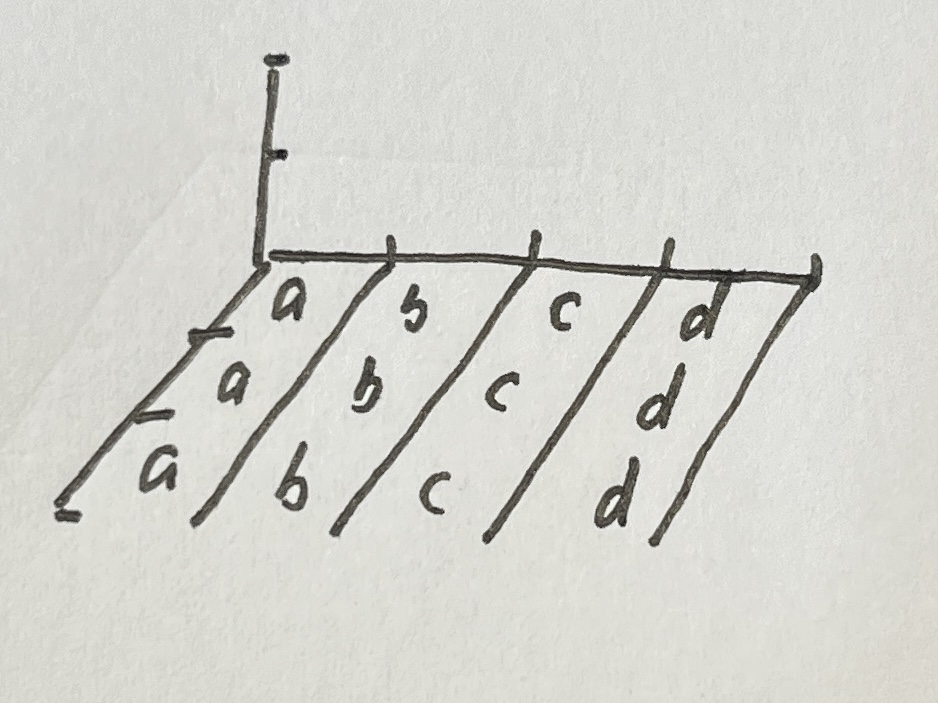 a b c d
a b c d
a b c d